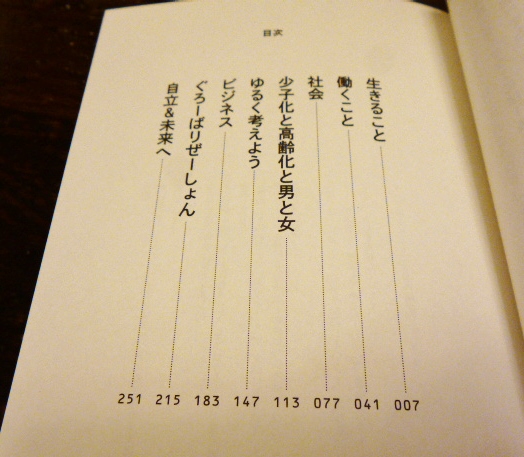 目次
生きること 007
働くこと 041
社会 077
少子化と高齢化と男と女 113
ゆるく考えよう 147
ビジネス 183
ぐろーばりぜーしょん 215
自立&未来へ 251